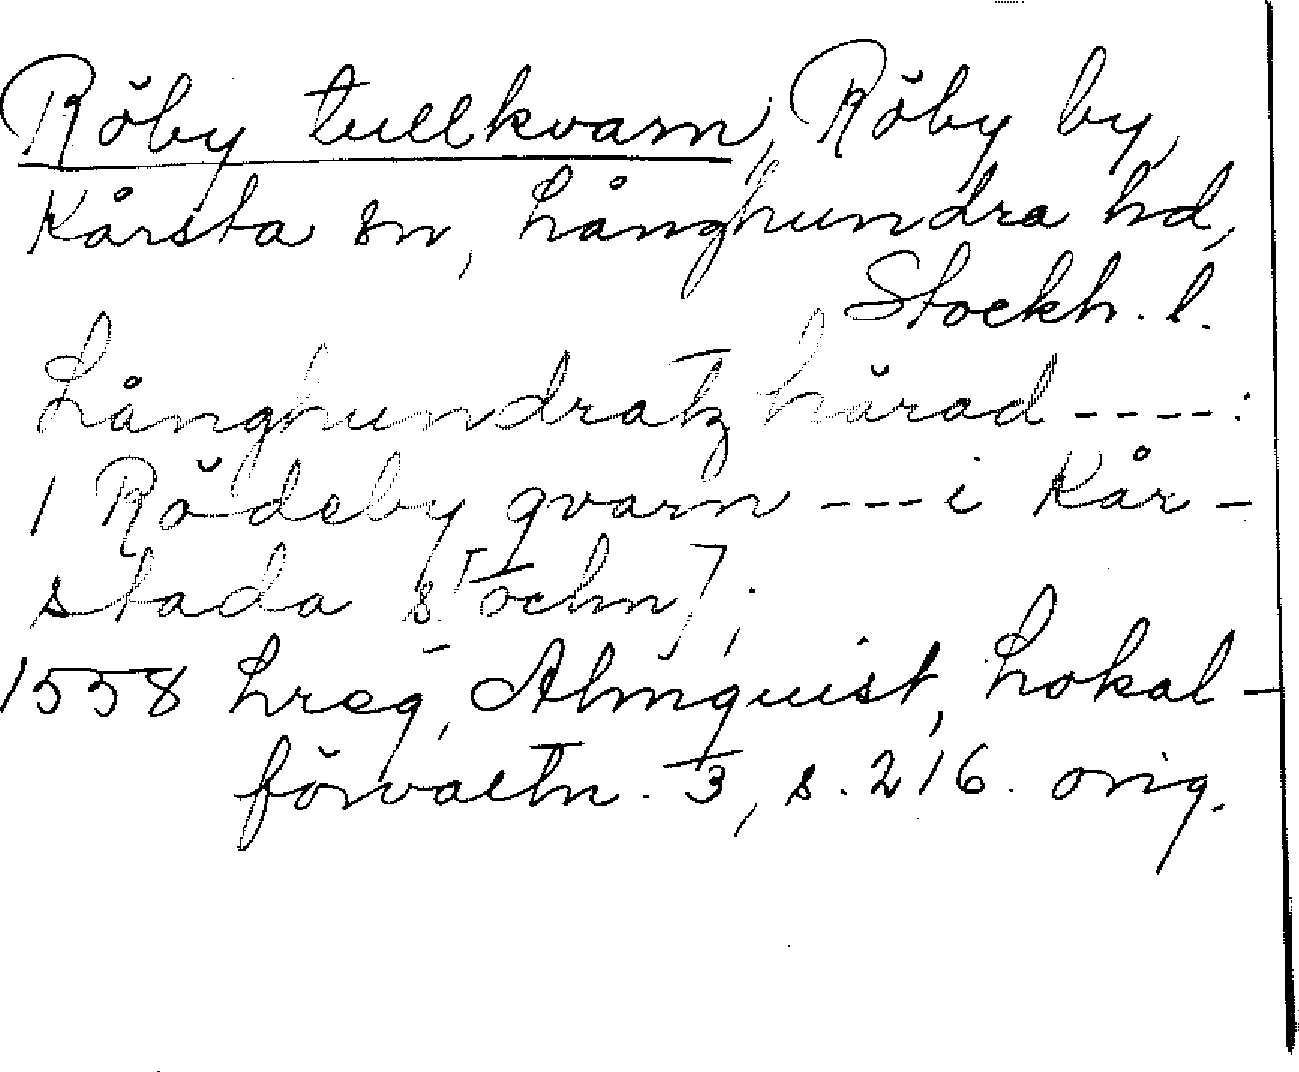 Röby tullkvarn, Röby by,
Kårsta sn, Långhundra hd,
Stockh. l.
Långhundratz härad ----:
1 Rödeby qvarn --- i Kår-
stada s[ochn];
1558 Lreg, Almquist, Lokal-
förvaltn. 3, s. 216. orig.